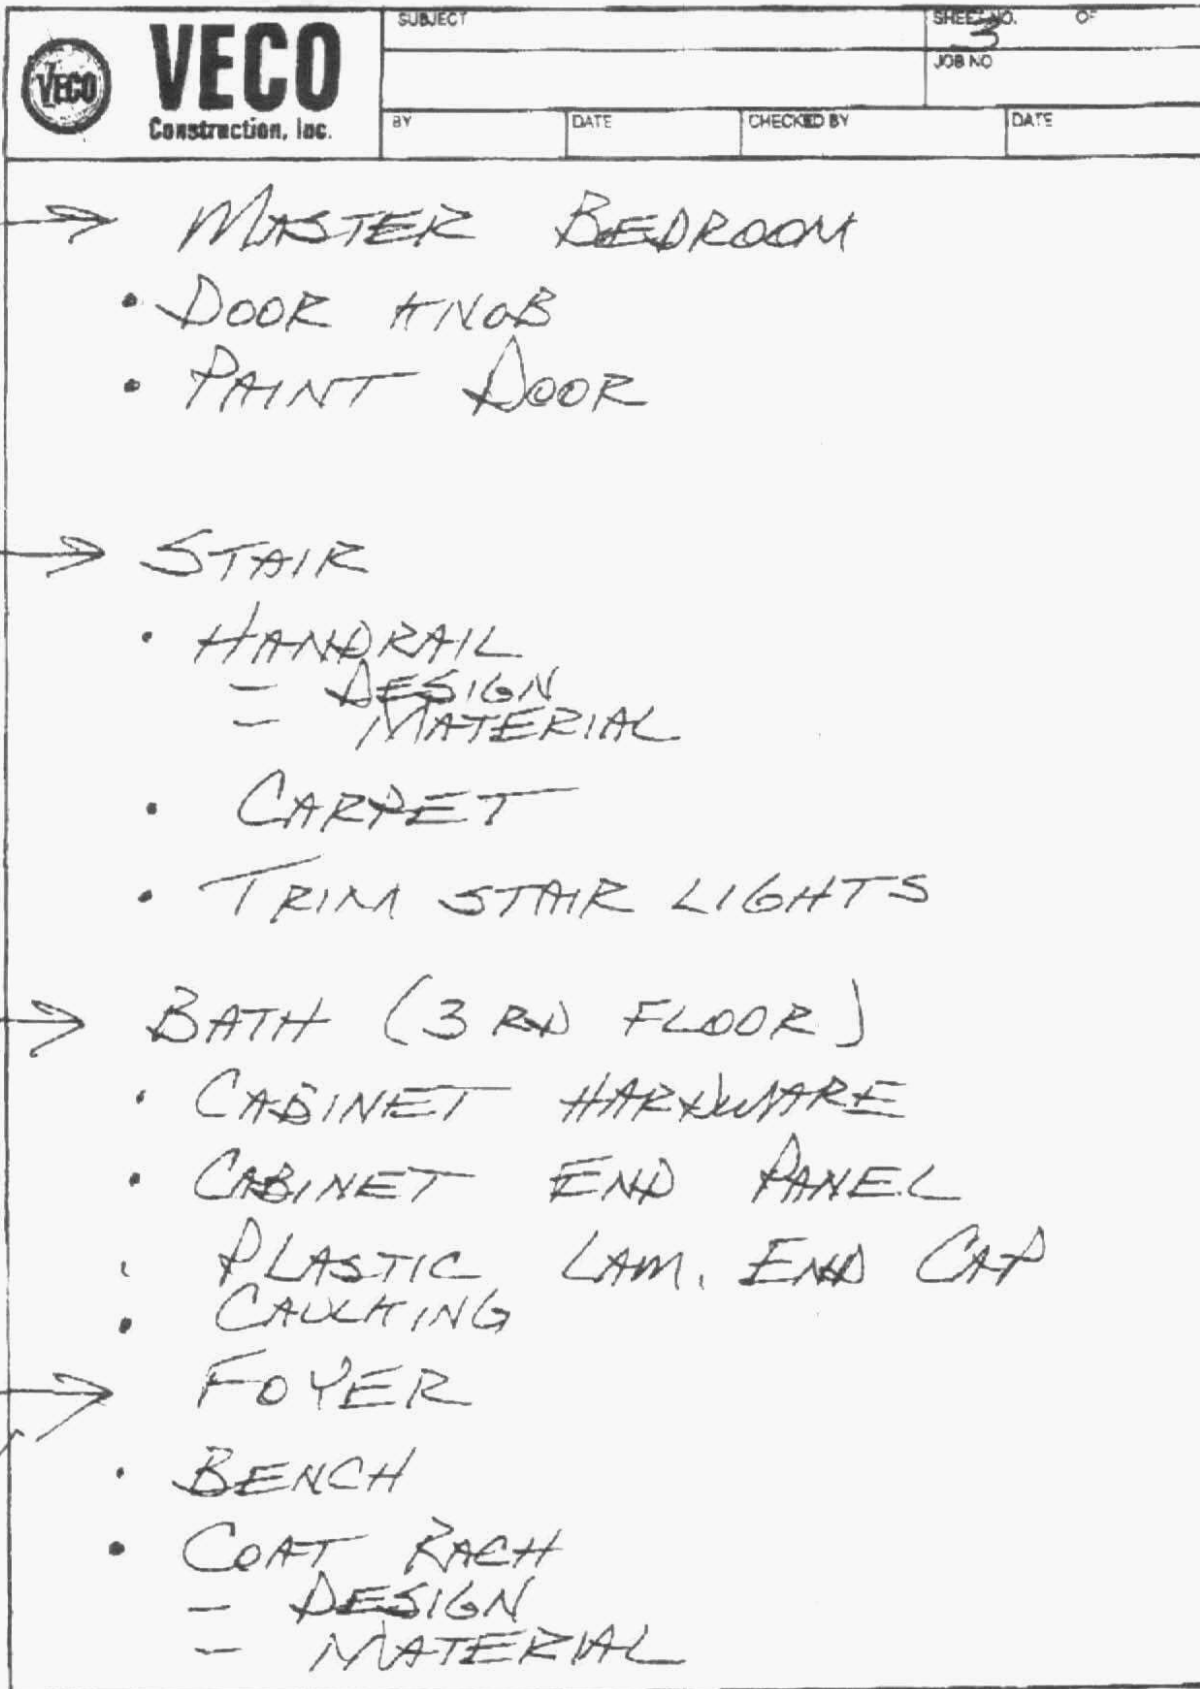 VECO
VECO
Construction, Inc.
SUBJECT
SHEET NO. OF
3
JOB NO
BY
DATE
CHECKED BY
DATE
→ MASTER BEDROOM
• DOOR KNOB
• PAINT DOOR
→ STAIR
• HANDRAIL
– DESIGN
– MATERIAL
• CARPET
• TRIM STAIR LIGHTS
→ BATH (3 RD FLOOR)
• CABINET HARDWARE
• CABINET END PANEL
• PLASTIC LAM. END CAP
• CAULKING
→ FOYER
• BENCH
• COAT RACK
– DESIGN
– MATERIAL